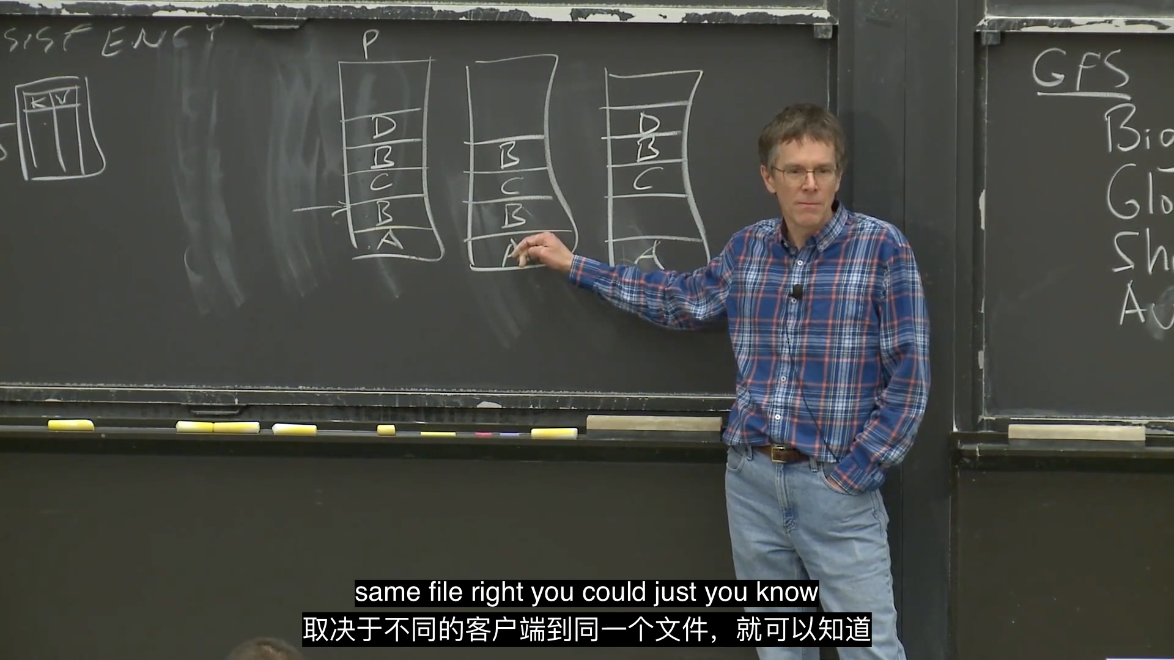 SISTENCY
K V
P
D
B
C
B
A
B
C
B
A
D
B
C
A
GFS
Big
Glo
Sh
Au
same file right you could just you know
取决于不同的客户端到同一个文件，就可以知道